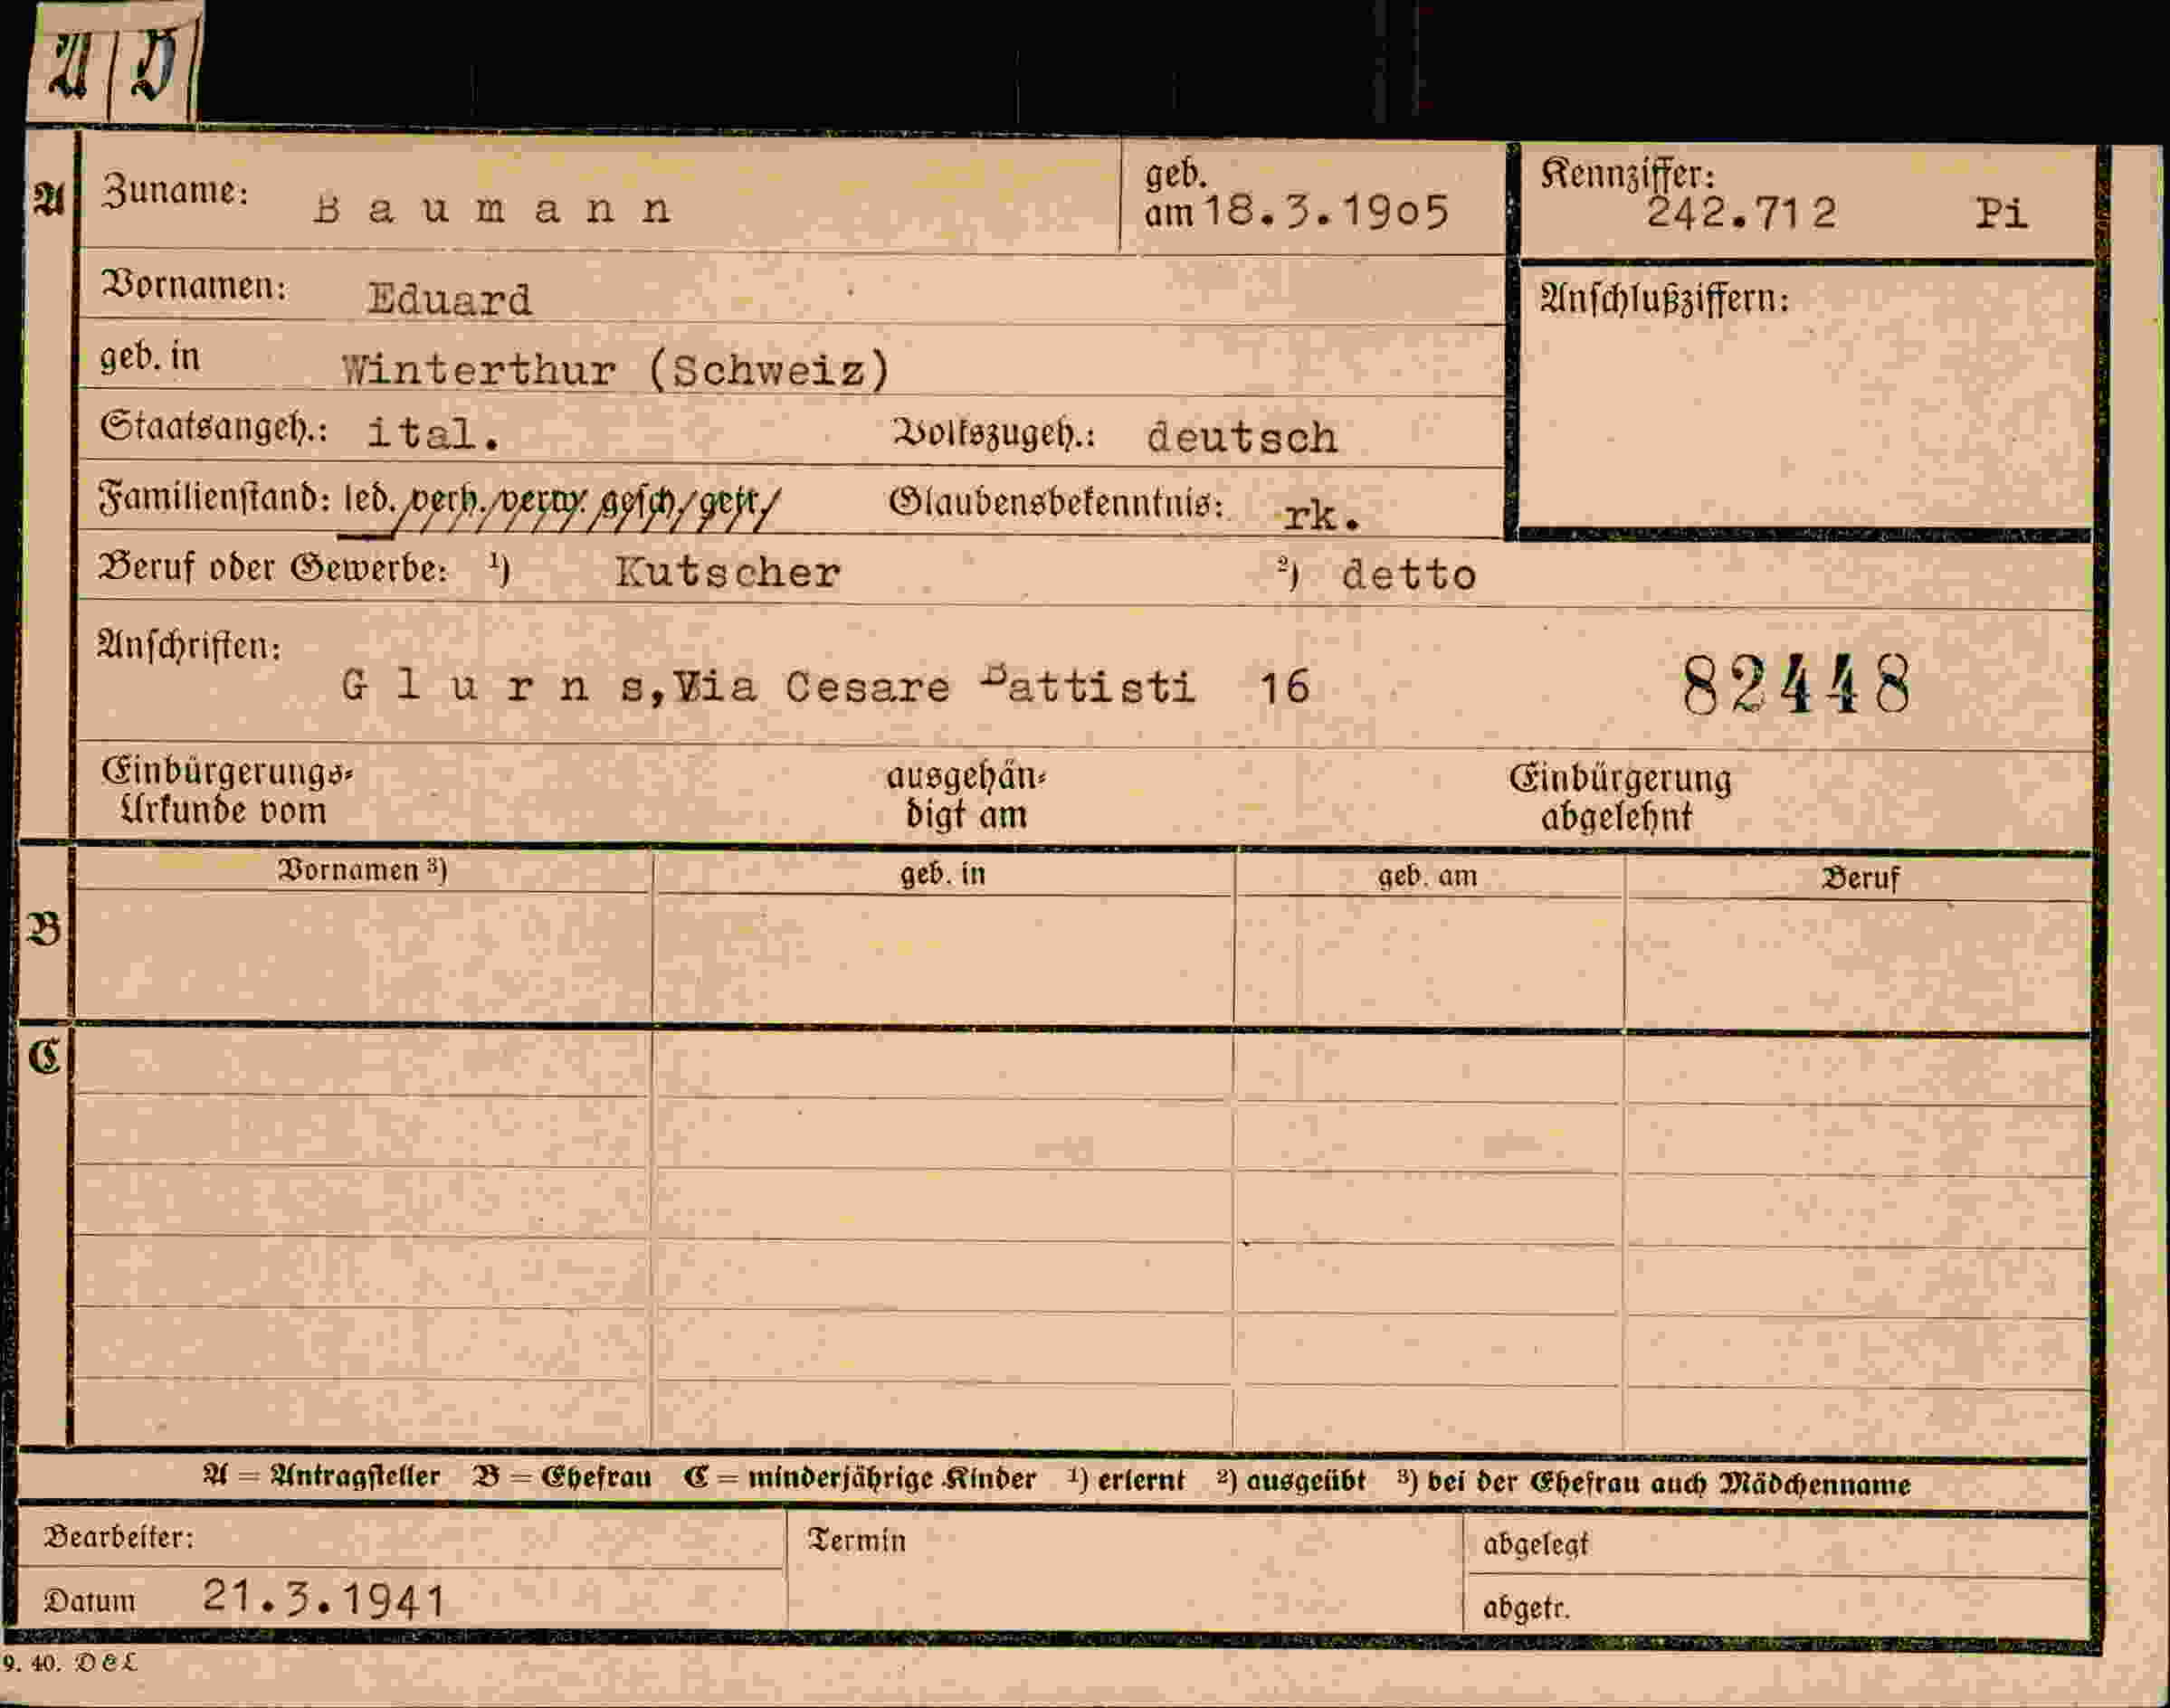 A D
A Zuname: Baumann geb. am 18.3.19o5 Kennziffer: 242.712 Pi
Vornamen: Eduard Anschlußziffern:
geb. in Winterthur (Schweiz)
Staatsangeh.: ital. Volkszugeh.: deutsch
Familienstand: led./verh./verw./gesch./getr./ Glaubensbekenntnis: rk.
Beruf oder Gewerbe: ¹) Kutscher ²) detto
Anschriften:
Glurns, Via Cesare Battisti 16 82448
Einbürgerungs- ausgehän- Einbürgerung
Urkunde vom digt am abgelehnt
Vornamen ³) geb. in geb. am Beruf
B
C
A = Antragsteller B = Ehefrau C = minderjährige Kinder ¹) erlernt ²) ausgeübt ³) bei der Ehefrau auch Mädchenname
Bearbeiter: Termin abgelegt
Datum 21.3.1941 abgetr.
9. 40. D e L